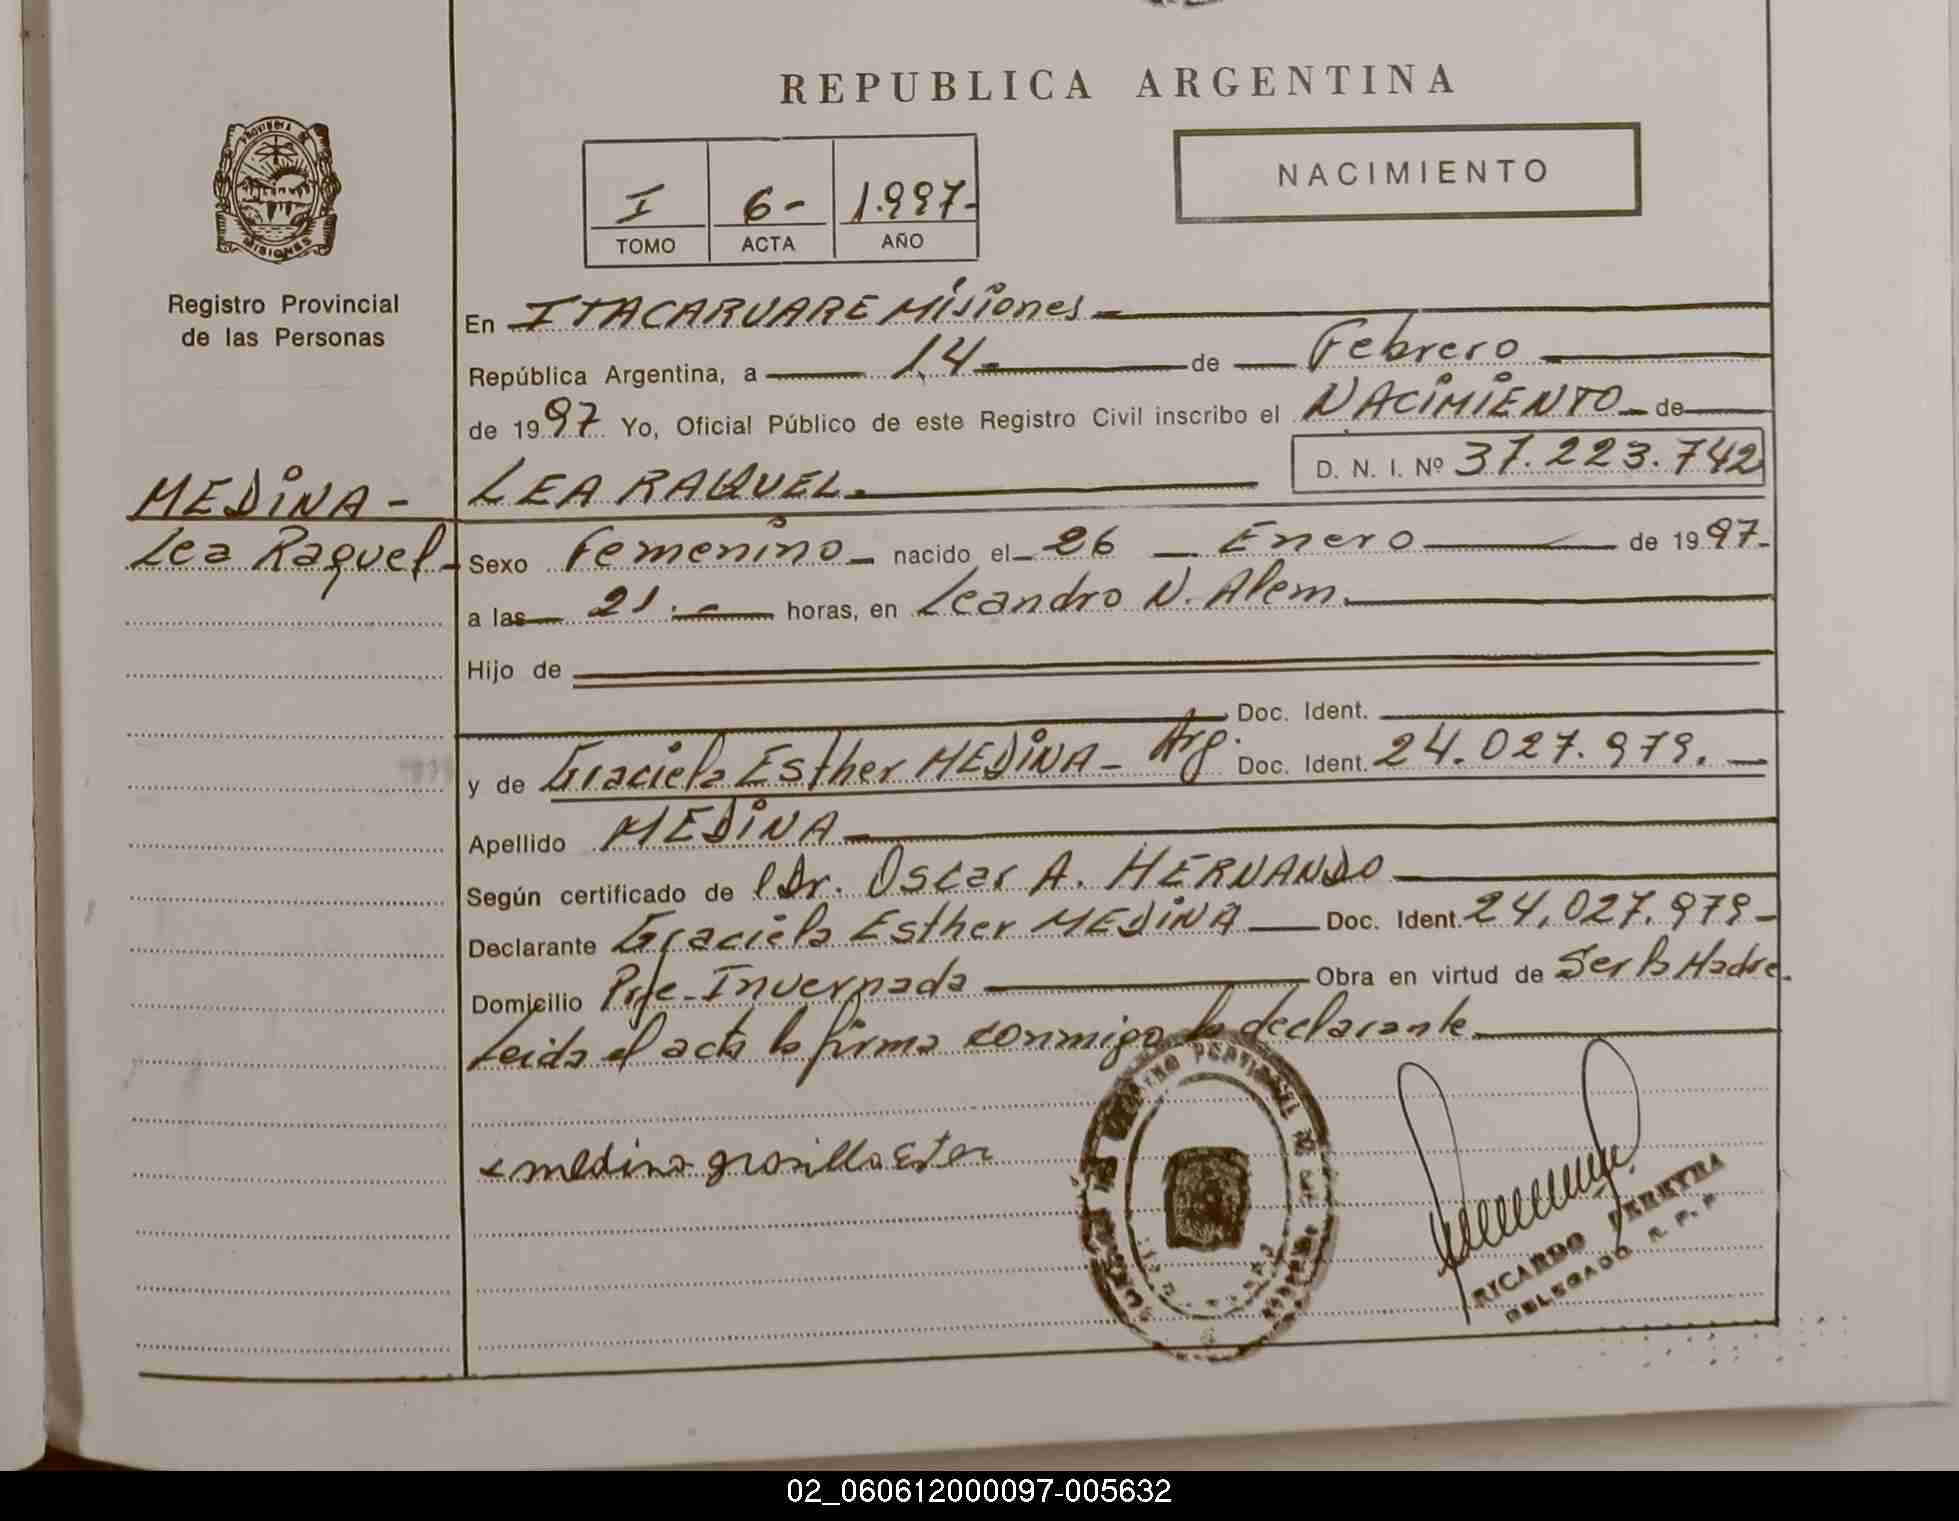 REPUBLICA ARGENTINA
NACIMIENTO
I 6- 1.997-
TOMO ACTA AÑO
PROVINCIA DE MISIONES
Registro Provincial
de las Personas
MEDINA -
Lea Raquel -
En ITACARUARE Misiones
República Argentina, a 14- de Febrero
de 1997 Yo, Oficial Público de este Registro Civil inscribo el NACIMIENTO de
LEA RAQUEL. D. N. I. Nº 37.223.742
Sexo Femenino nacido el 26 Enero de 1997-
a las 21.- horas, en Leandro N. Alem.
Hijo de
Doc. Ident.
y de Graciela Esther MEDINA - Arg. Doc. Ident. 24.027.979.
Apellido MEDINA
Según certificado de Dr. Oscar A. HERNANDO
Declarante Graciela Esther MEDINA Doc. Ident. 24.027.979-
Domicilio Pje. Invernada Obra en virtud de Ser la Madre.
Leida el acta la firma conmigo la declarante
medina
RICARDO PEREYRA
DELEGADO R. P. P
02_060612000097-005632